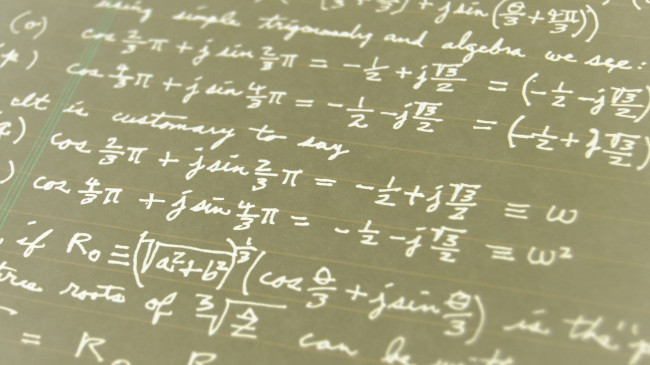 + j sin (θ/3 + 4π/3))
using simple trigonometry and algebra we see:
(o) cos 2/3 π + j sin 2/3 π = -1/2 + j √3/2 = (-1/2 - j √3/2)
p) cos 4/3 π + j sin 4/3 π = -1/2 - j √3/2 = (-1/2 + j √3/2)
It is customary to say
q) cos 2/3 π + j sin 2/3 π = -1/2 + j √3/2 ≡ ω
) cos 4/3 π + j sin 4/3 π = -1/2 - j √3/2 ≡ ω²
, if R₀ ≡ (√a²+b²)^1/3 (cos θ/3 + j sin θ/3) is the "p
roots of ³√z can be
= R₀ R